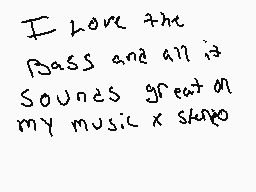 I Love the
Bass and all it
sounds great on
my music x stereo